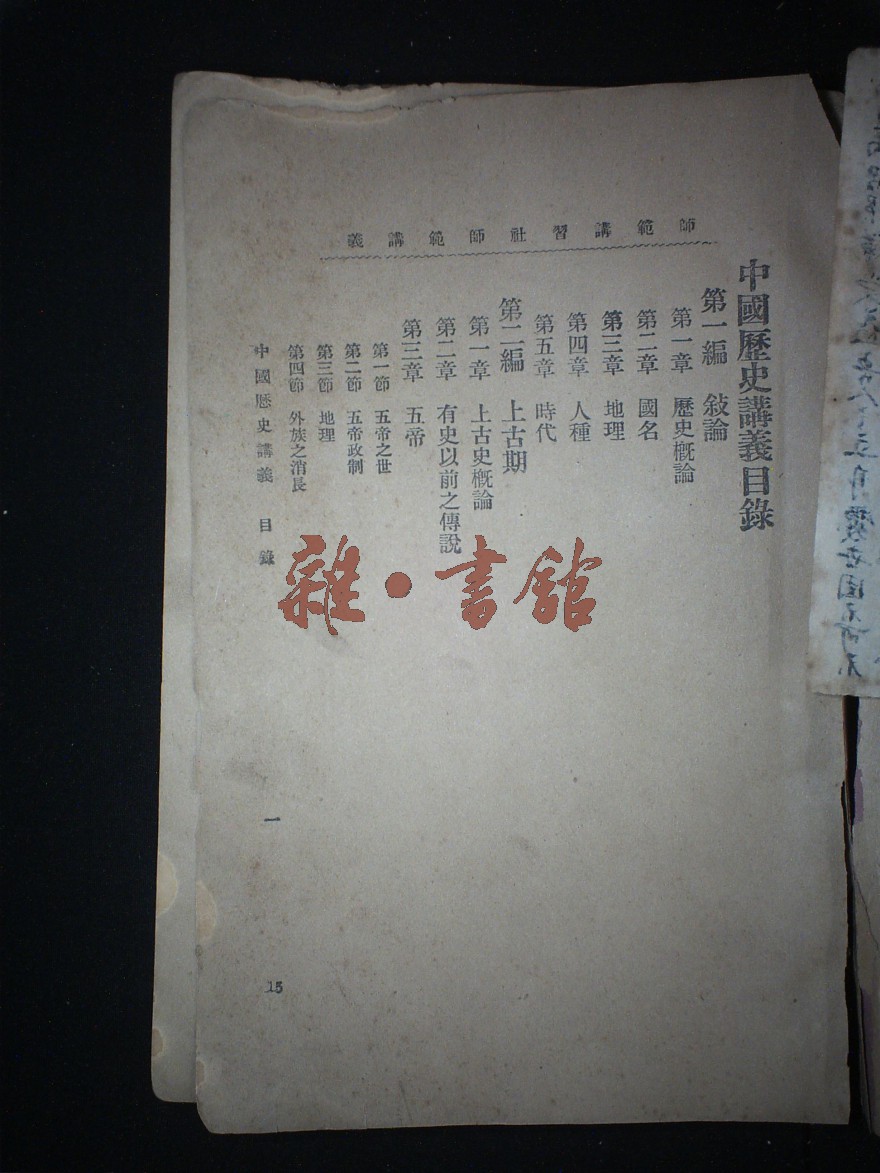 師範講習社師範講義
中國歷史講義目錄
第一編　敍論
第一章　歷史槪論
第二章　國名
第三章　地理
第四章　人種
第五章　時代
第二編　上古期
第一章　上古史槪論
第二章　有史以前之傳說
第三章　五帝
第一節　五帝之世
第二節　五帝政制
第三節　地理
第四節　外族之消長
中國歷史講義　目錄
一
15
雜·書館